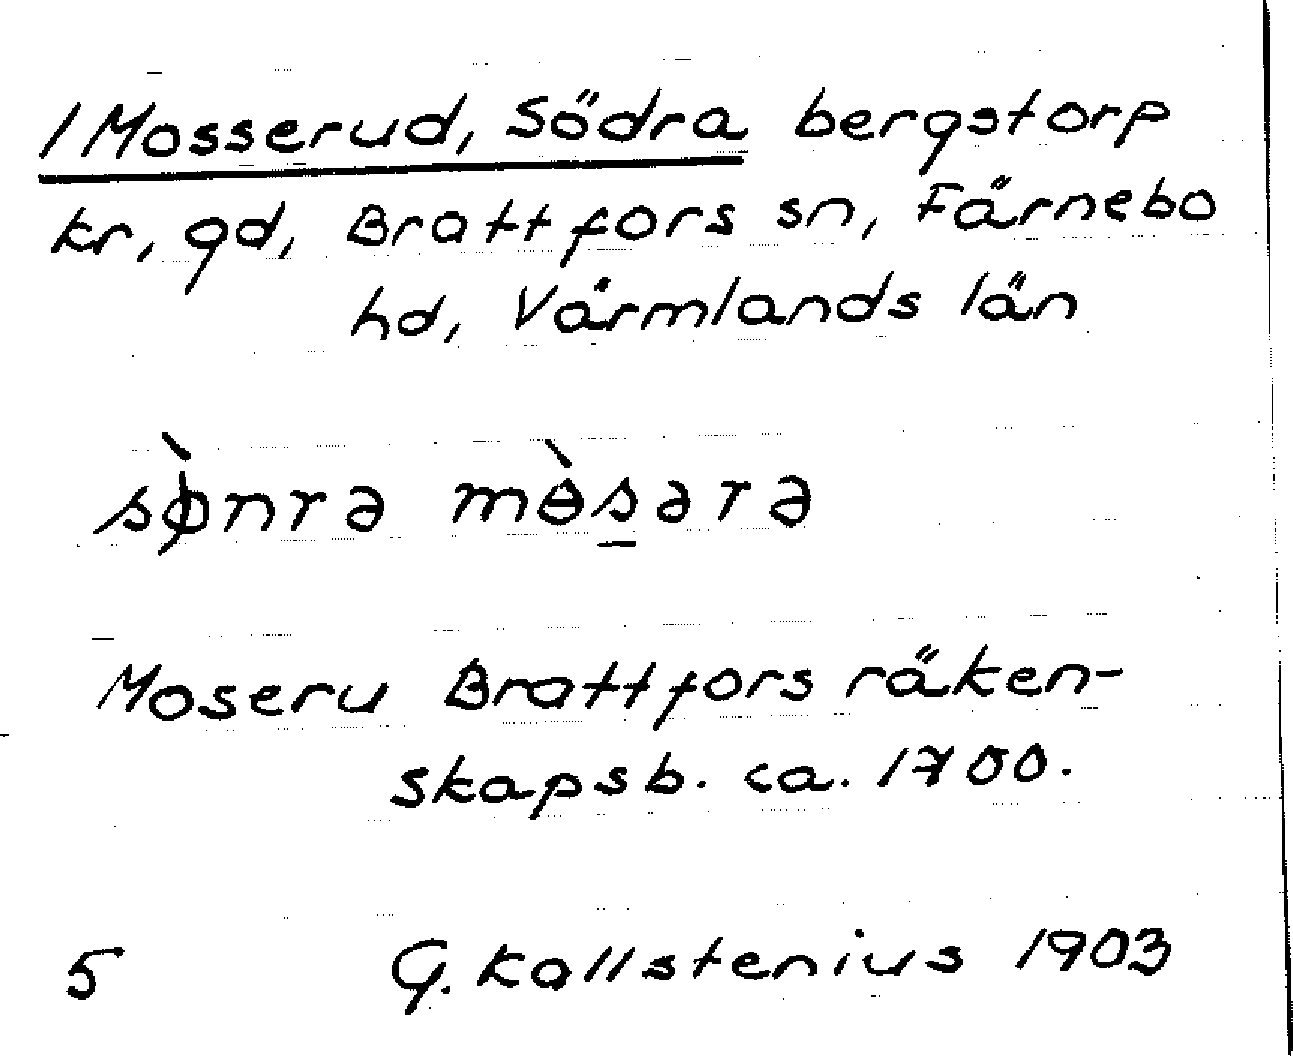 /Mosserud, Södra bergstorp
kr, gd, Brattfors sn, Färnebo
hd, Värmlands län
sø̀nrə mɵ̀s̱ərə
Moseru Brattfors räken-
skapsb. ca. 1700.
5 G. Kallstenius 1903